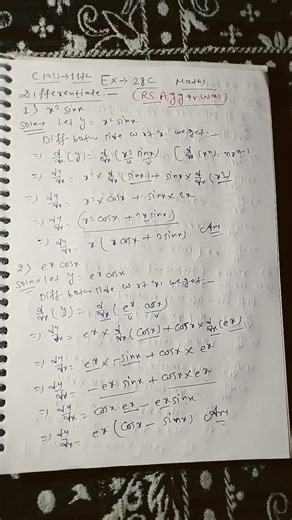 Class → 11th Ex → 28C Maths
Differentiate :- (RS Aggarwal)
1) x² sinx
Soln → Let y = x² sinx
Diff both side w r t x, we get :-
⇒ d/dx (y) = d/dx (x² sinx) [d/dx (xⁿ) = nxⁿ⁻¹
⇒ dy/dx = x² × d/dx (sinx) + sinx × d/dx (x²)
⇒ dy/dx = x² × cosx + sinx × 2x
⇒ dy/dx = (x² cosx + 2x sinx)
⇒ dy/dx = x (x cosx + 2sinx) Ans
2) eˣ cosx
Soln → Let y = eˣ cosx
Diff both side w r t x, we get :-
⇒ d/dx (y) = d/dx (eˣ cosx)
⇒ dy/dx = eˣ × d/dx (cosx) + cosx × d/dx (eˣ)
⇒ dy/dx = eˣ × -sinx + cosx × eˣ
⇒ dy/dx = -eˣ sinx + cosx × eˣ
⇒ dy/dx = cosx · eˣ - eˣ sinx
⇒ dy/dx = eˣ (cosx - sinx) Ans